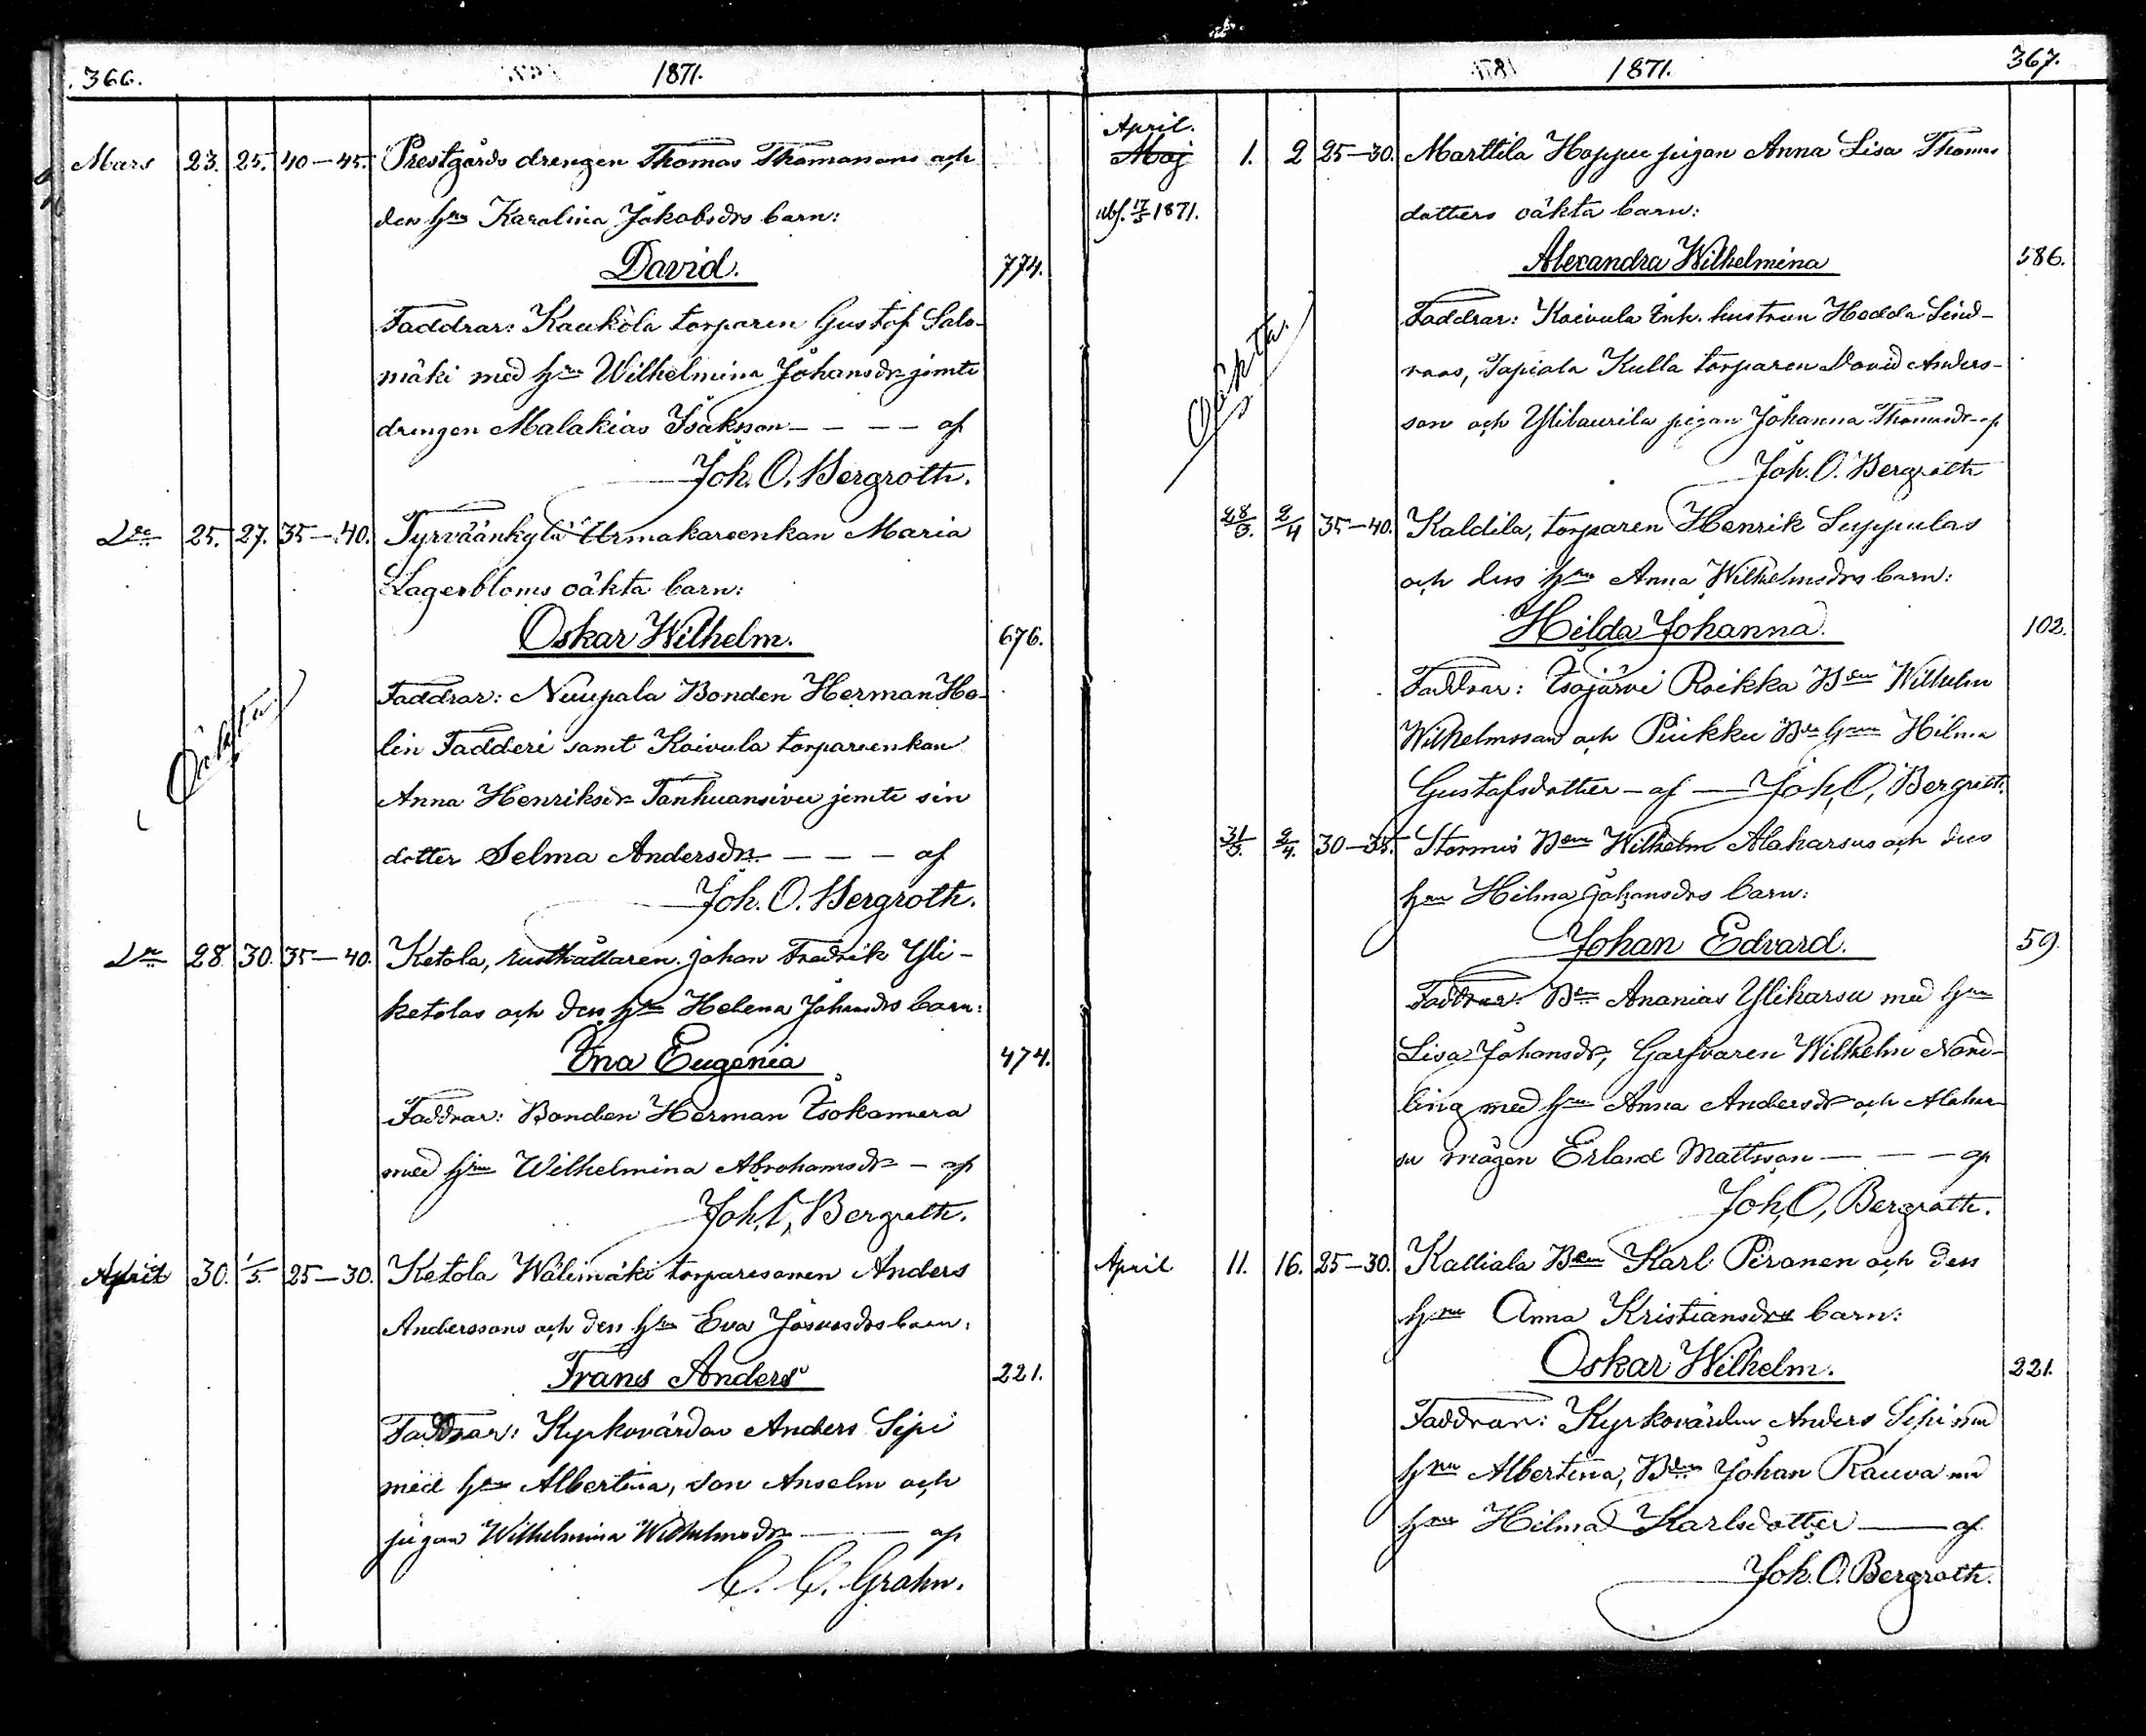 366. 1871.
Mars 23. 25. 40–45. Prestgårds drengen Thomas Thomassons och
dess hru Karolina Jakobsdrs barn:
David. 774.
Faddrar: Kauköla torparen Gustaf Salo-
mäki med hru Wilhelmina Johansdr jemte
drengen Malakias Isaksson – – – – af
Joh. O. Bergroth.
Do 25. 27. 35–40. Tyrväänkylä Urmakareenkan Maria
Lagerbloms oäkta barn:
Oskar Wilhelm. 676.
Oäkta
Faddrar: Nuupala Bonden Herman He-
lin Fadderi samt Koivula torpareenkan
Anna Henriksdr Tanhuansivu jemte sin
dotter Selma Andersdr. – – – af
Joh. O. Bergroth.
Do 28 30. 35–40. Ketola, rusthållaren Johan Fredrik Yli-
ketolas och dess hru Helena Johansdrs barn:
Ina Eugenia 474.
Faddrar: Bonden Herman Isokamera
med hru Wilhelmina Abrahamsdr – af
Joh, O, Bergroth.
April 30. 1/5. 25–30. Ketola Wälimäki torparesonen Anders
Anderssons och dess hru Eva Josuasdrs barn:
Frans Anders 221.
Faddrar: Kyrkovärden Anders Sipi
med hru Albertina, son Anselm och
pigan Wilhelmina Wilhelmsdr – – af
C. C. Grahn.
1871. 367.
April.
Maj 1. 2 25–30. Marttila Hoppu pigan Anna Lisa Thomas
17/5 1871. dotters oäkta barn:
Alexandra Wilhelmina 586.
Oäkta.
Faddrar: Koivula Inh. hustrun Hedda Lind-
roos, Tapiola Kulla torparen David Anders-
son och Ylilaurila pigan Johanna Thomasdr – af
Joh. O. Bergroth
28/3. 2/4 35–40. Kaldila, torparen Henrik Suppulas
och dess hru Anna Wilhelmsdrs barn:
Hilda Johanna. 102.
Faddrar: Isojärvi Roikka Bden Wilhelm
Wilhelmsson och Piikku Bde hrun Hilma
Gustafsdotter – af — Joh, O, Bergroth.
31/3. 2/4. 30–35. Stormis Bden Wilhelm Alaharsus och dess
hru Hilma Johansdrs barn:
Johan Edvard. 59.
Faddrar: Bden Ananias Yliharsu med hru
Lisa Johansdr, Garfvaren Wilhelm Nord-
ling med hru Anna Andersdr och Alahar-
su mågen Erland Mattsson – – – af
Joh, O, Bergroth.
April 11. 16. 25–30. Kalliala Bden Karl Piranen och dess
hru Anna Kristiansdrs barn:
Oskar Wilhelm. 221.
Faddrar: Kyrkovärden Anders Sipi med
hru Albertina, Bden Johan Rauva med
hru Hilma Karlsdotter — af
Joh. O. Bergroth.